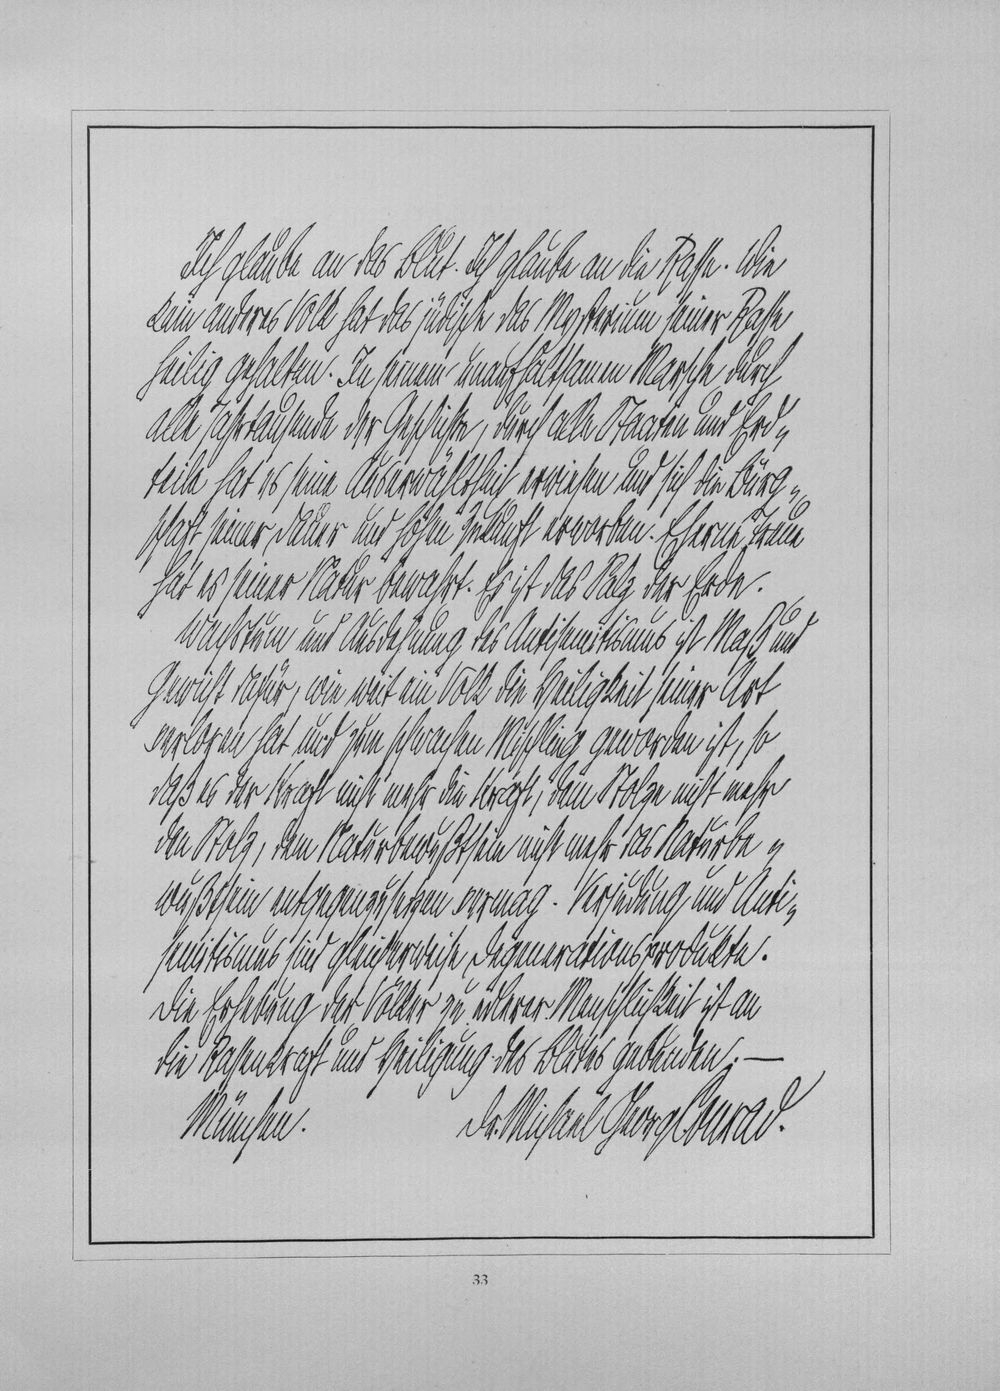 Ich glaube an das Blut. Ich glaube an die Rasse. Wie
kein anderes Volk hat das jüdische das Mysterium seiner Rasse
heilig gehalten. In seinem unaufhaltsamen Marsche durch
alle Jahrtausende der Geschichte, durch alle Staaten und Erd„
teile hat es seine Auserwähltheit erwiesen und sich die Bürg„
schaft seiner Dauer und hohen Zukunft erworben. Eherne Treue
hat es seiner Natur bewahrt. Es ist das Salz der Erde.
Wachstum und Ausdehnung des Antisemitismus ist Maß und
Gewicht dafür, wie weit ein Volk die Heiligkeit seiner Art
verloren hat und zum schwachen Mischling geworden ist, so
daß es der Kraft nicht mehr die Kraft, dem Stolze nicht mehr
den Stolz, dem Naturbewußtsein nicht mehr das Naturbe„
wußtsein entgegenzusetzen vermag. Verjudung und Anti„
semitismus sind gleicherweise Degenerationsprodukte.
Die Erhebung der Völker zu edlerer Menschlichkeit ist an
die Rassenkraft und Heiligung des Blutes gebunden. —
München. Dr. Michael Georg Conrad.
33